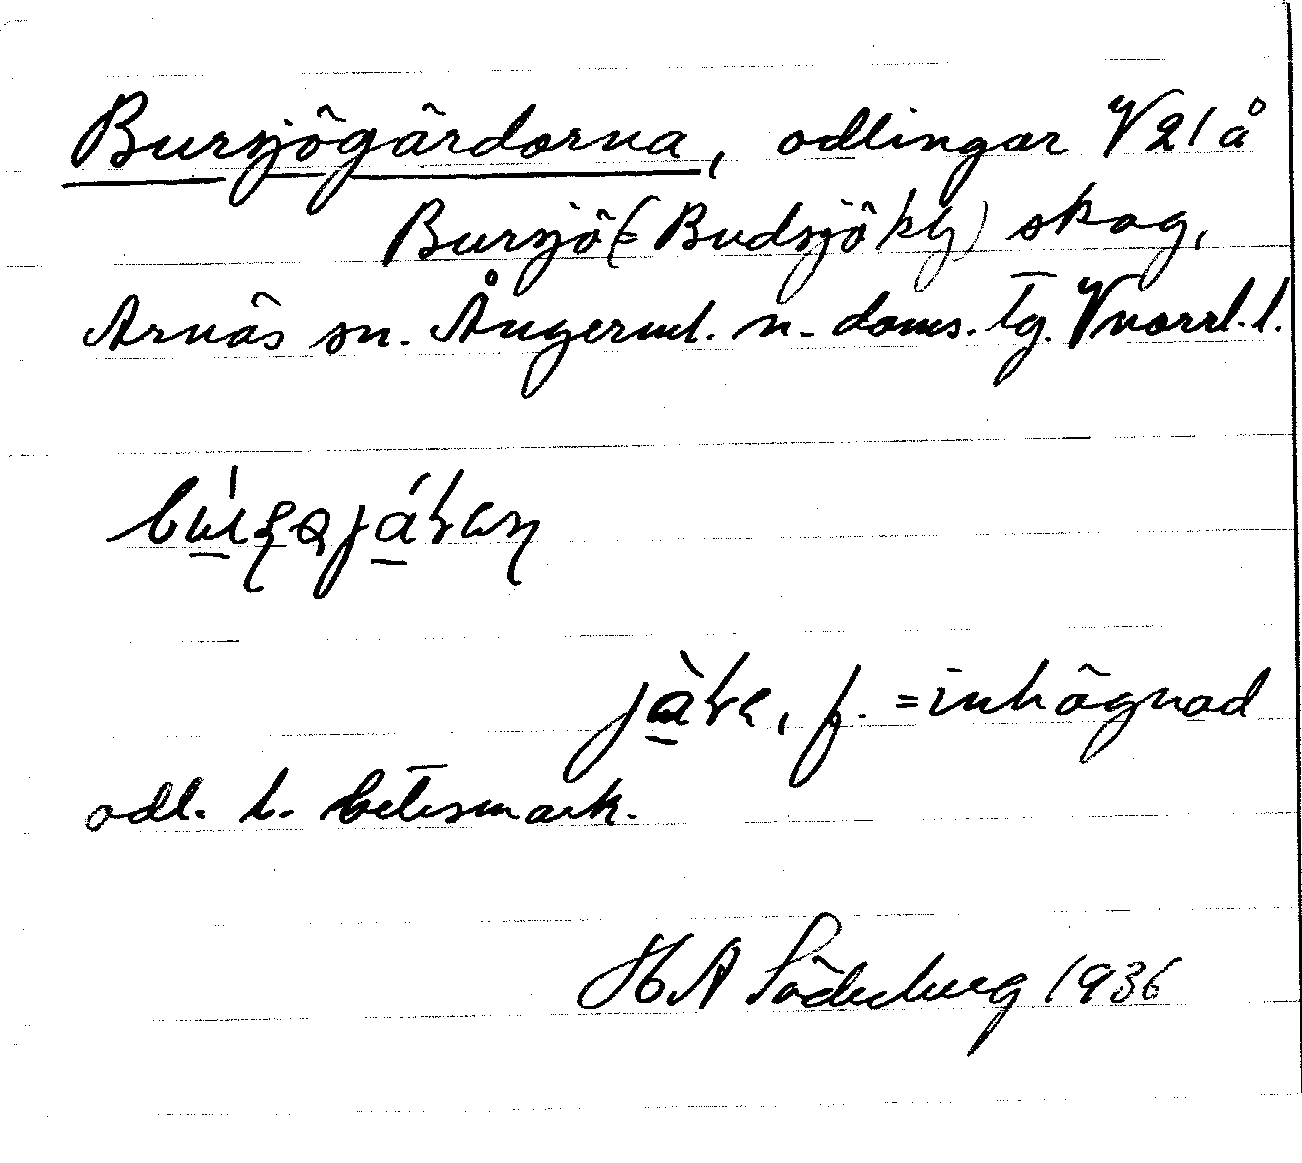 Bursjögärdorna, odlingar V 21 å
Bursjö (= Budsjö kly) skog,
Arnäs sn. Ångerml. n. doms. tg. Vnorrl. l.
f. = inhägnad
odl. l. betesmark.
HA Söderberg 1936